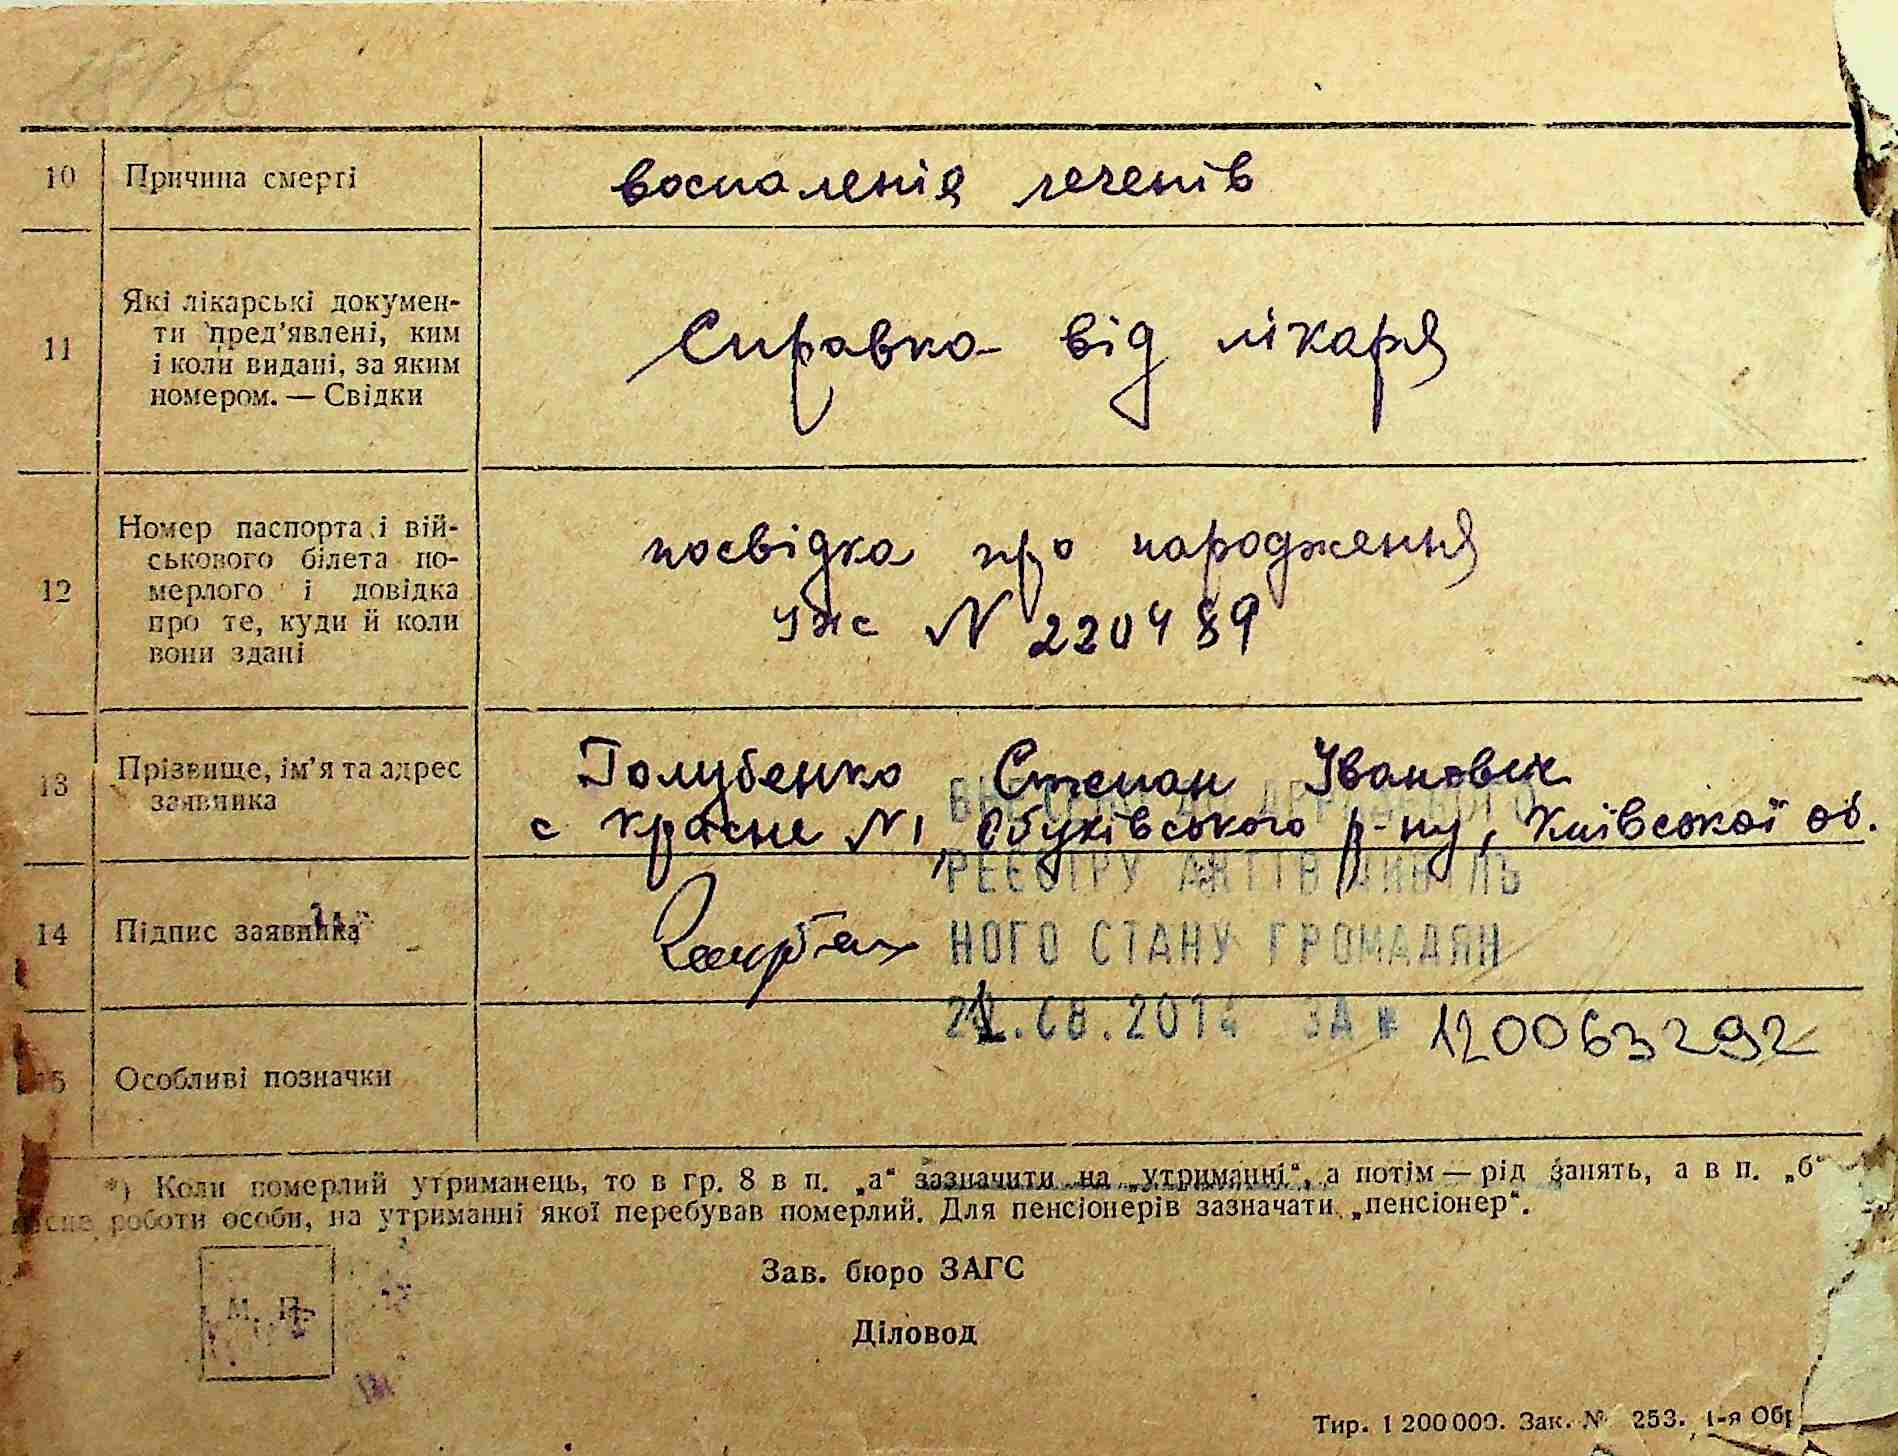 10 Причина смерті воспаленія печенів
11 Які лікарські докумен-
ти пред'явлені, ким
і коли видані, за яким
номером. — Свідки
Справка від лікаря
12 Номер паспорта і вій-
ськового білета по-
мерлого і довідка
про те, куди й коли
вони здані
посвідка про народження
УЖ N 220489
13 Прізвище, ім'я та адрес
заявника
Голубенко Степан Іванович
с Красне N1, Обухівського р-ну, Київської об.
14 Підпис заявника
РЕЄСТРУ АКТІВ ЦИВІЛЬ
НОГО СТАНУ ГРОМАДЯН
.08.2014 ЗА № 120063292
15 Особливі позначки
*) Коли померлий утриманець, то в гр. 8 в п. „а“ зазначити на „утриманні“, а потім — рід занять, а в п. „б“
роботи особи, на утриманні якої перебував померлий. Для пенсіонерів зазначати „пенсіонер“.
Зав. бюро ЗАГС
М. П.
Діловод
Тир. 1 200 000. Зак. № 253. 1-я Обр